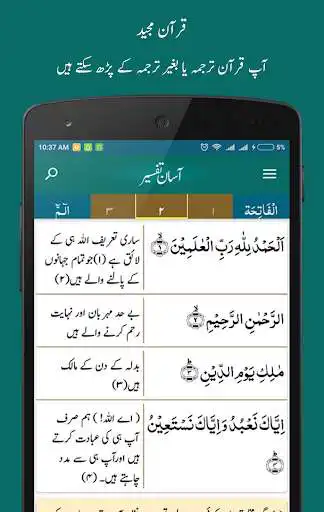 قرآن مجید
آپ قرآن ترجمہ یا بغیر ترجمہ کے پڑھ سکتے ہیں
10:37 AM
5%
آسان تفسیر
الْفَاتِحَة ١ ٢ ٣ الٓمّٓ
اَلْحَمْدُ لِلّٰهِ رَبِّ الْعٰلَمِيْنَ ۙ﴿۱﴾
ساری تعریف اللہ ہی کے
لائق ہے (۱) جو تمام جہانوں
کے پالنے والے ہیں (۲)
الرَّحْمٰنِ الرَّحِيْمِ ۙ﴿۲﴾
بے حد مہربان اور نہایت
رحم کرنے والے ہیں
مٰلِكِ يَوْمِ الدِّيْنِ ؕ﴿۳﴾
بدلہ کے دن کے مالک
ہیں (۳)
اِيَّاكَ نَعْبُدُ وَاِيَّاكَ نَسْتَعِيْنُ ؕ﴿۴﴾
(اے اللہ!) ہم صرف
آپ ہی کی عبادت کرتے
ہیں اور آپ ہی سے مدد
چاہتے ہیں۔ (۴)